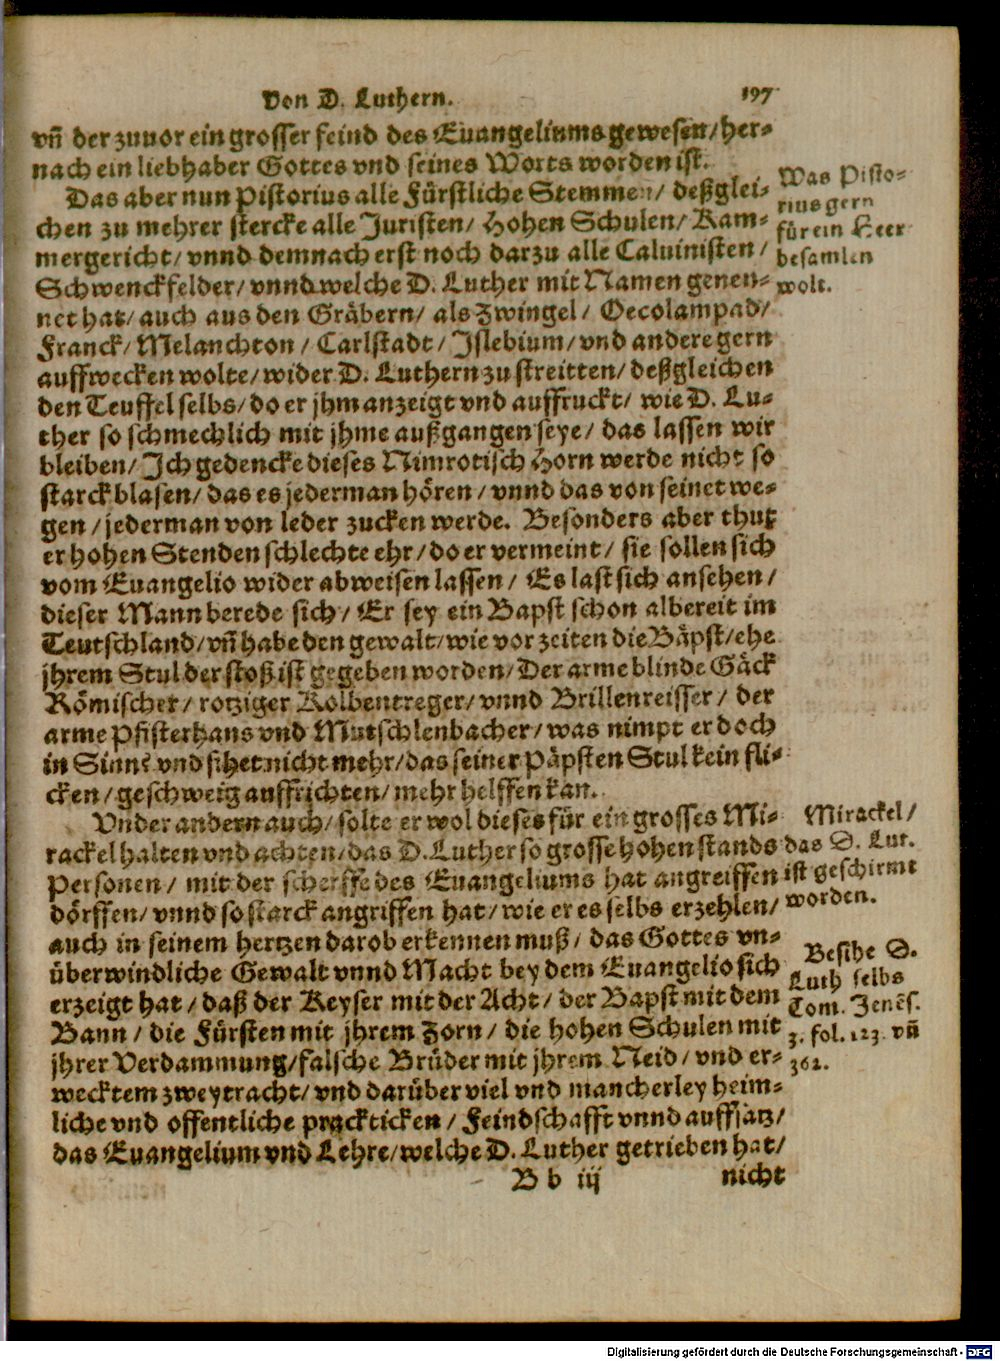 Von D. Luthern. 197
vñ der zuuor ein grosser feind des Euangeliums gewesen/ her-
nach ein liebhaber Gottes vnd seines Worts worden ist.
Das aber nun Pistorius alle Fürstliche Stemmen/ deßglei-
chen zu mehrer stercke alle Juristen/ Hohen Schulen/ Kam-
mergericht/ vnnd demnach erst noch darzu alle Caluinisten/
Schwenckfelder/ vnnd welche D. Luther mit Namen genen-
net hat/ auch aus den Gräbern/ als Zwingel/ Oecolampad/
Franck/ Melanchton/ Carlstadt/ Jslebium/ vnd andere gern
auffwecken wolte/ wider D. Luthern zu streitten/ deßgleichen
den Teuffel selbs/ do er jhm anzeigt vnd auffruckt/ wie D. Lu-
ther so schmechlich mit jhme außgangen seye/ das lassen wir
bleiben/ Jch gedencke dieses Nimrotisch Horn werde nicht so
starck blasen/ das es jederman hören/ vnnd das von seinet we-
gen/ jederman von leder zucken werde. Besonders aber thut
er hohen Stenden schlechte ehr/ do er vermeint/ sie sollen sich
vom Euangelio wider abweisen lassen/ Es last sich ansehen/
dieser Mann berede sich/ Er sey ein Bapst schon albereit im
Teutschland/ vñ habe den gewalt/ wie vor zeiten die Bäpst/ ehe
jhrem Stul der stoß ist gegeben worden/ Der arme blinde Gäck
Römischer/ rotziger Kolbentreger/ vnnd Brillenreisser/ der
arme Pfisterhans vnd Mutschlenbacher/ was nimpt er doch
in Sinne vnd sihet nicht mehr/ das seiner Päpsten Stul kein fli-
cken/ geschweig auffrichten/ mehr helffen kan.
Vnder andern auch/ solte er wol dieses für ein grosses Mi-
rackel halten vnd achten/ das D. Luther so grosse hohen stands
Personen/ mit der scherffe des Euangeliums hat angreiffen
dörffen/ vnnd so starck angriffen hat/ wie er es selbs erzehlen/
auch in seinem hertzen darob erkennen muß/ das Gottes vn-
überwindliche Gewalt vnnd Macht bey dem Euangelio sich
erzeigt hat/ daß der Keyser mit der Acht/ der Bapst mit dem
Bann/ die Fürsten mit jhrem Zorn/ die hohen Schulen mit
jhrer Verdammung/ falsche Brüder mit jhrem Neid/ vnd er-
wecktem zweytracht/ vnd darüber viel vnd mancherley heim-
liche vnd offentliche prackticken/ Feindschafft vnnd auffsatz/
das Euangelium vnd Lehre/ welche D. Luther getrieben hat/
B b iij nicht
Was Pisto-
rius gern
für ein Heer
besamlen
wolt.
Mirackel/
das D. Lut.
ist geschirmt
worden.
Besihe D.
Luth selbs
Tom. Jenēs.
3. fol. 123. vñ
362.
Digitalisierung gefördert durch die Deutsche Forschungsgemeinschaft - DFG